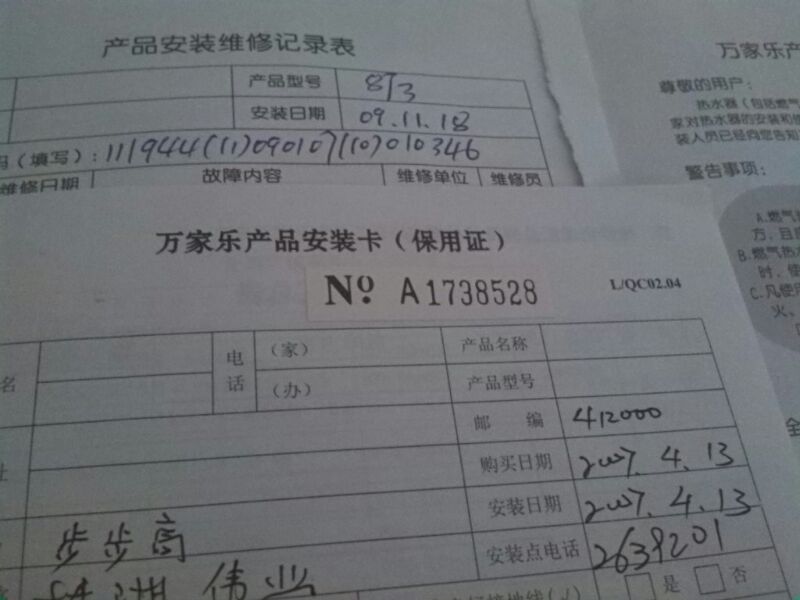 产品安装维修记录表
产品型号 8J3
安装日期 09.11.18
码（填写）：111944(11)090107(10)010346
维修日期 故障内容 维修单位 维修员
万家乐产
尊敬的用户：
热水器（包括燃气
家对热水器的安装和使
装人员已经向您告知
警告事项：
A.燃气
方，且
B.燃气热
时，使
C.凡使用
火、
全
万家乐产品安装卡（保用证）
Nº A1738528
L/QC02.04
名 电话 （家） 产品名称
（办） 产品型号
址 邮编 412000
购买日期 2007.4.13
安装日期 2007.4.13
步步高 安装点电话 2639201
株洲 伟业 接地线(√) 是 否